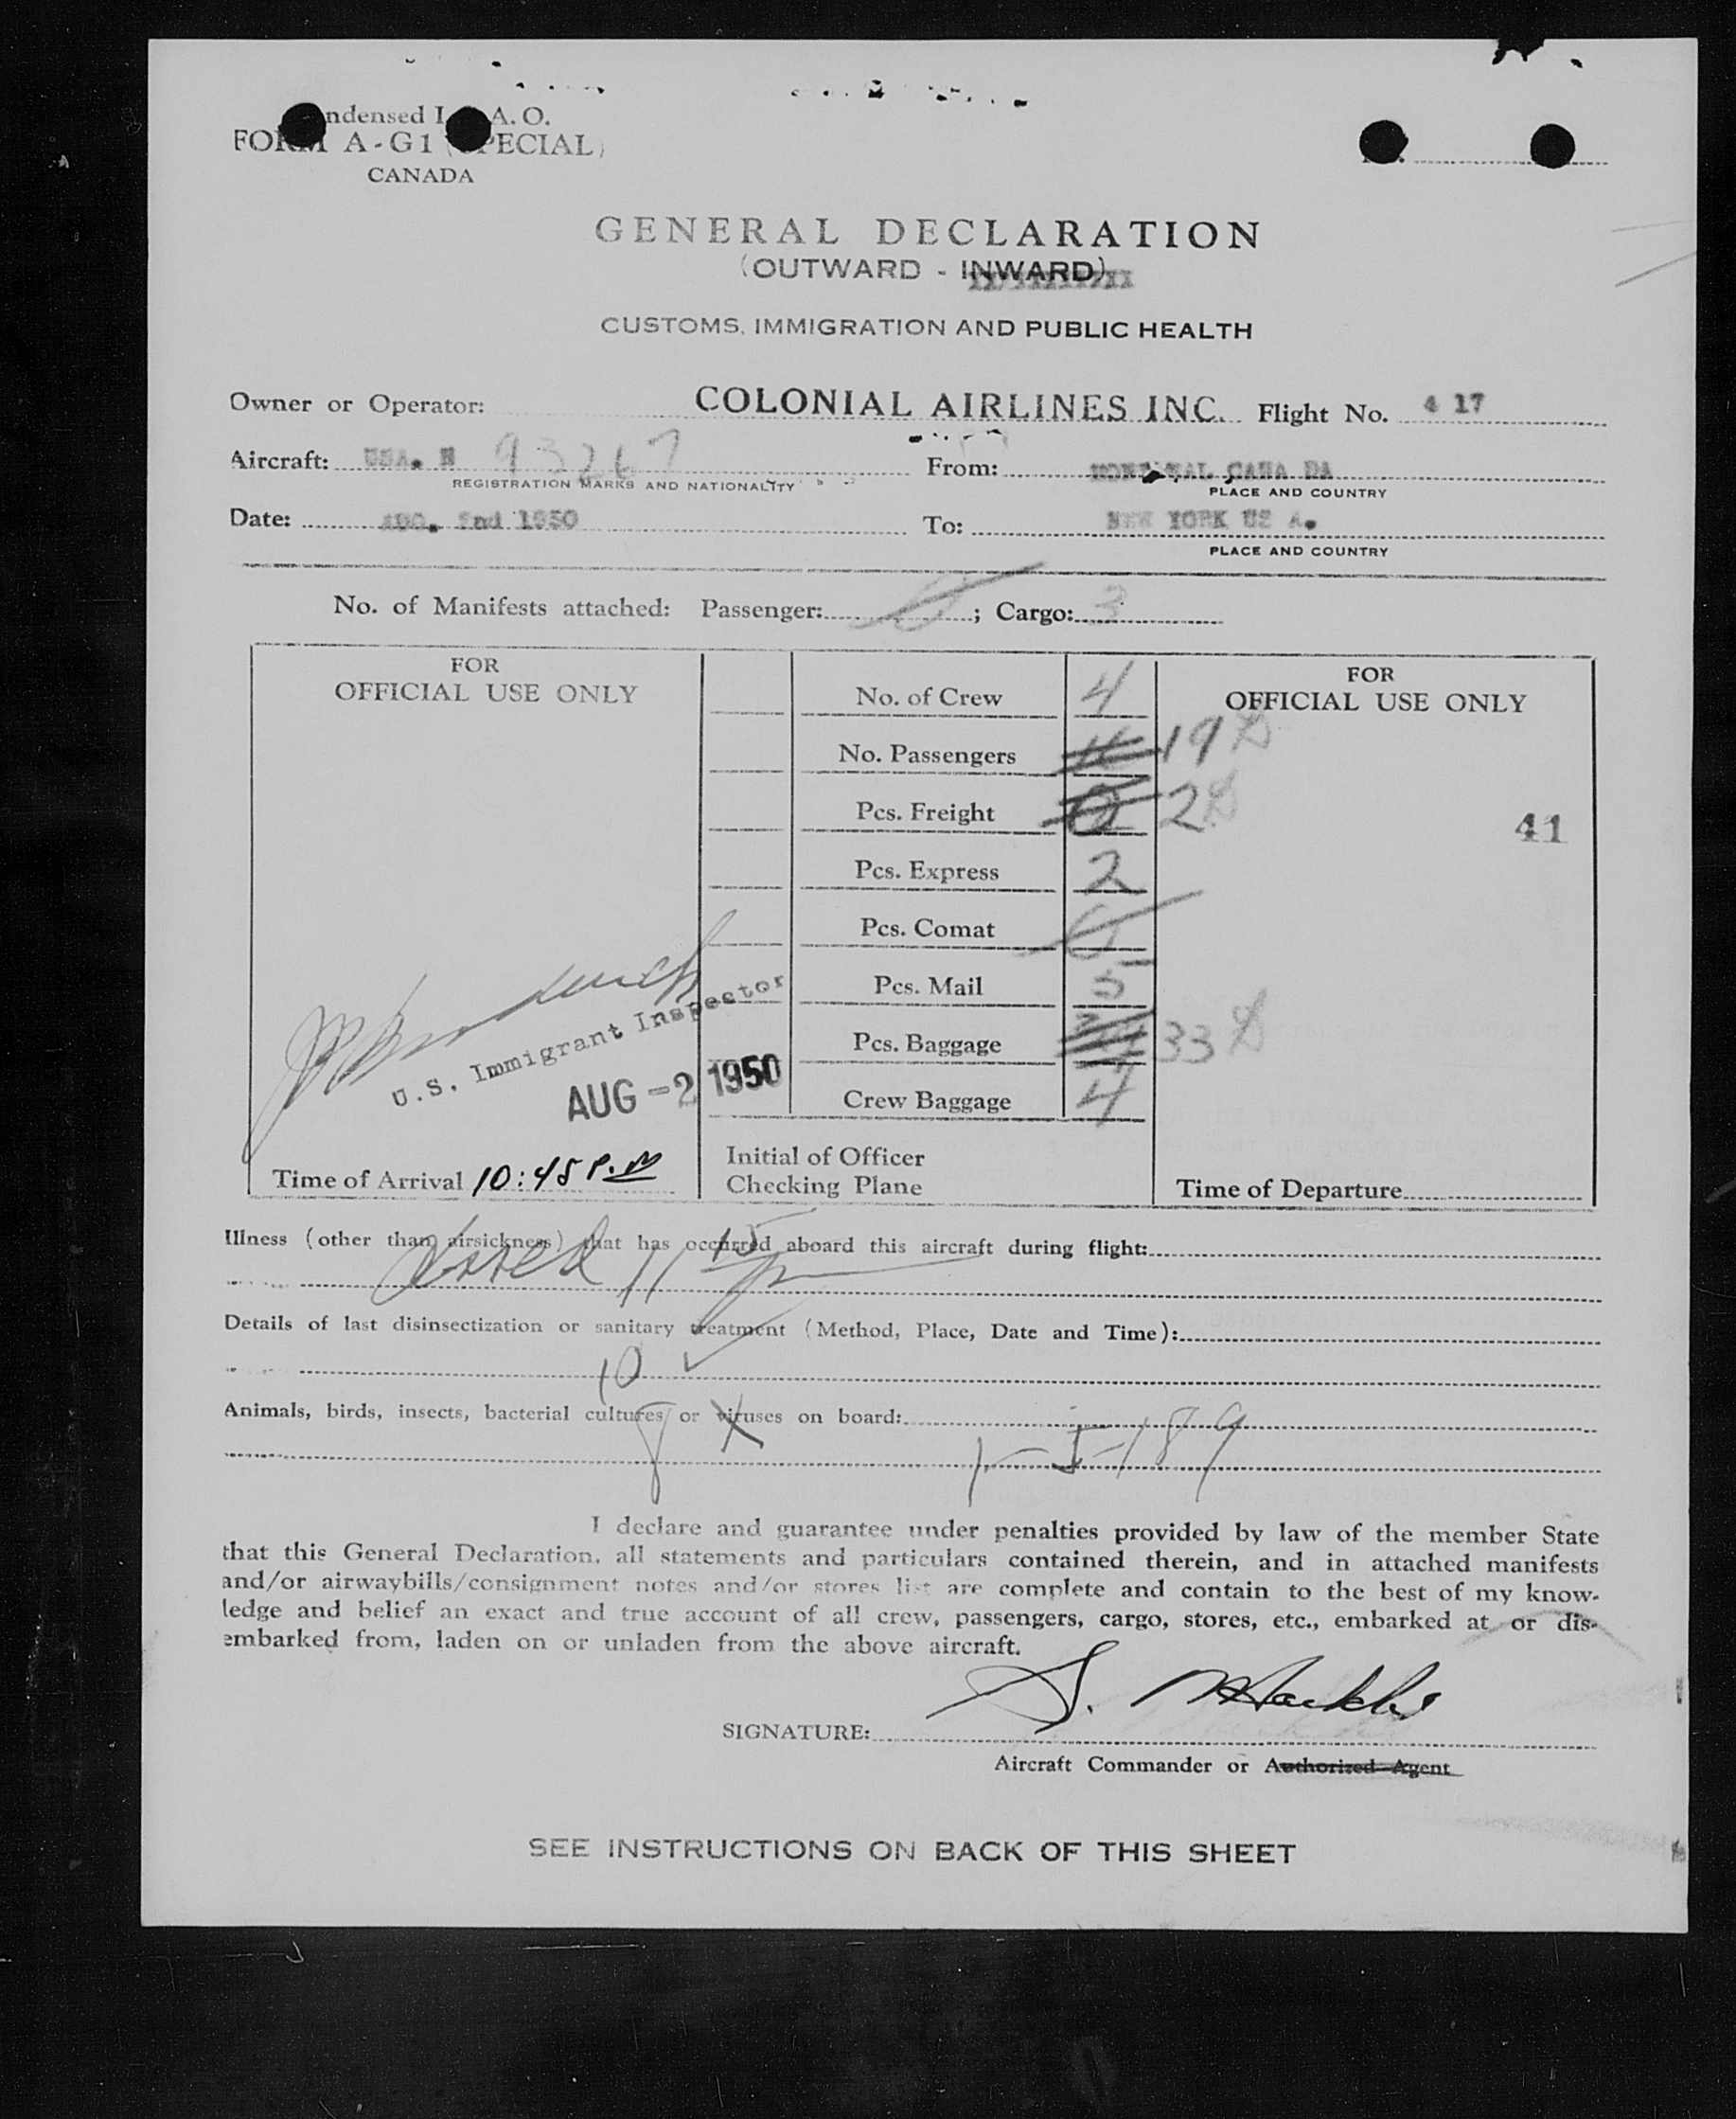 ndensed I A. O.
FORM A-G1 (SPECIAL)
CANADA
GENERAL DECLARATION
(OUTWARD - INWARD)
CUSTOMS, IMMIGRATION AND PUBLIC HEALTH
Owner or Operator: COLONIAL AIRLINES INC. Flight No. 4 17
Aircraft: USA. N 93267 From: MONTREAL CANA DA
REGISTRATION MARKS AND NATIONALITY PLACE AND COUNTRY
Date: AUG. 2nd 1950 To: NEW YORK US A.
PLACE AND COUNTRY
No. of Manifests attached: Passenger: 0; Cargo: 3
FOR
OFFICIAL USE ONLY
FOR
OFFICIAL USE ONLY
No. of Crew 4
No. Passengers 19
Pcs. Freight 2
41
Pcs. Express 2
Pcs. Comat 0
Pcs. Mail 5
Pcs. Baggage 33
Crew Baggage 4
U.S. Immigrant Inspector
AUG -2 1950
Time of Arrival 10:45 P.M
Initial of Officer
Checking Plane
Time of Departure
Illness (other than airsickness) that has occurred aboard this aircraft during flight:
11 15
Details of last disinsectization or sanitary treatment (Method, Place, Date and Time):
10
Animals, birds, insects, bacterial cultures or viruses on board:
8 X
I declare and guarantee under penalties provided by law of the member State
that this General Declaration, all statements and particulars contained therein, and in attached manifests
and/or airwaybills/consignment notes and/or stores list are complete and contain to the best of my know-
ledge and belief an exact and true account of all crew, passengers, cargo, stores, etc., embarked at or dis-
embarked from, laden on or unladen from the above aircraft.
SIGNATURE: S.
Aircraft Commander or Authorized Agent
SEE INSTRUCTIONS ON BACK OF THIS SHEET